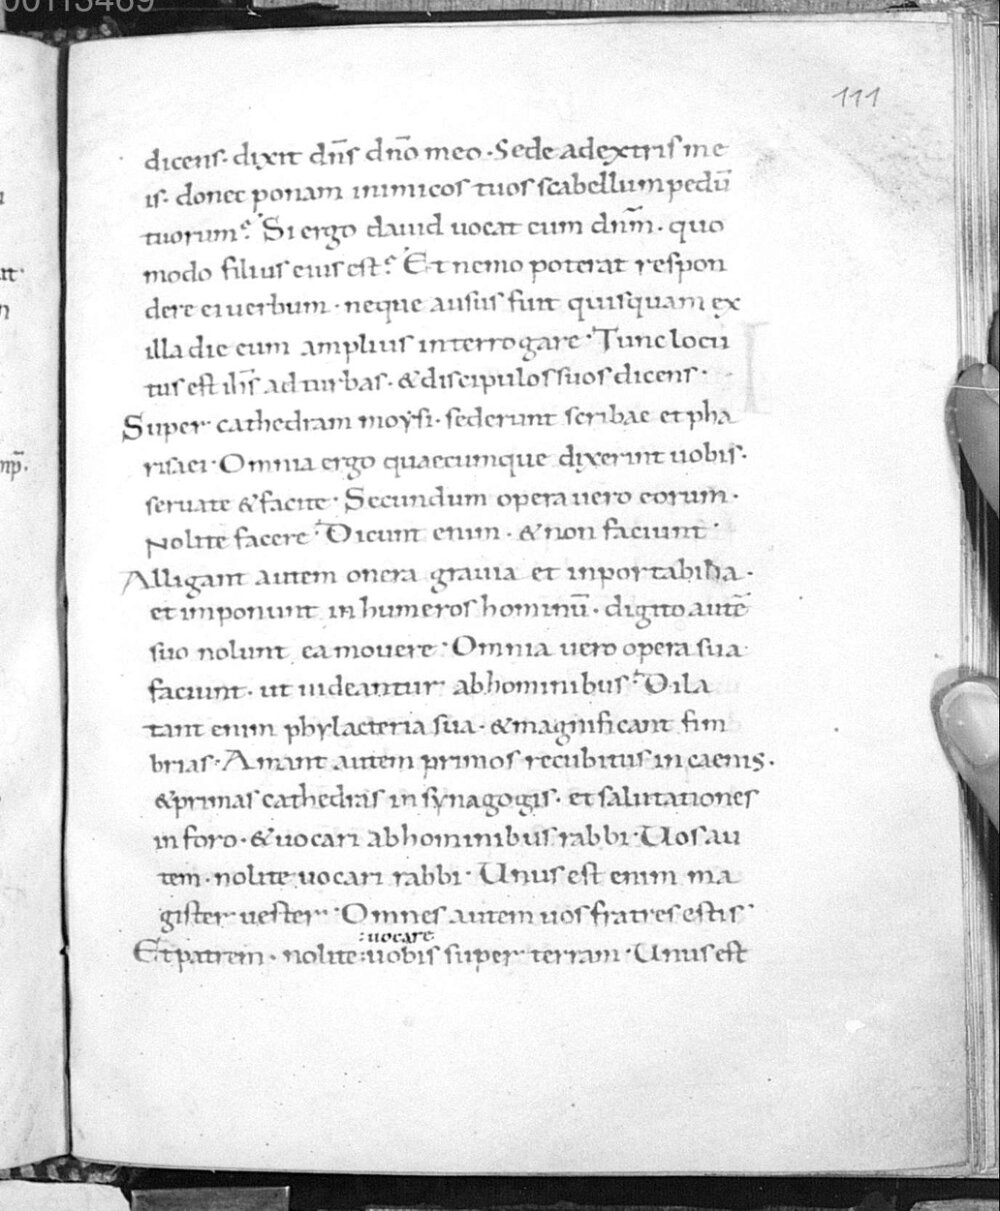 00113489
111
dicens· dixit dn̄s dn̄o meo· Sede adextris me
is· donec ponam inimicos tuos scabellum pedū
tuorum? Si ergo dauid uocat eum dnm̄· quo
modo filius eius est? Et nemo poterat respon
dere ei uerbum· neque ausus fuit quisquam ex
illa die eum amplius interrogare· Tunc locu
tus est ih̄s ad turbas· & discipulos suos dicens·
Super cathedram moysi· sederunt scribae et pha
risaei· Omnia ergo quaecumque dixerint uobis·
seruate & facite· Secundum opera uero eorum·
nolite facere· Dicunt enim· & non faciunt·
Alligant autem onera grauia et inportabilia·
et imponunt in humeros hominū· digito autē
suo nolunt ea mouere· Omnia uero opera sua
faciunt· ut uideantur abhominibus· Dila
tant enim phylacteria sua· & magnificant fim
brias· Amant autem primos recubitus in caenis·
& primas cathedras in synagogis· et salutationes
in foro· & uocari abhominibus rabbi· Uos au
tem· nolite uocari rabbi· Unus est enim ma
gister uester· Omnes autem uos fratres estis·
:uocare
Et patrem· nolite:uobis super terram· Unus est